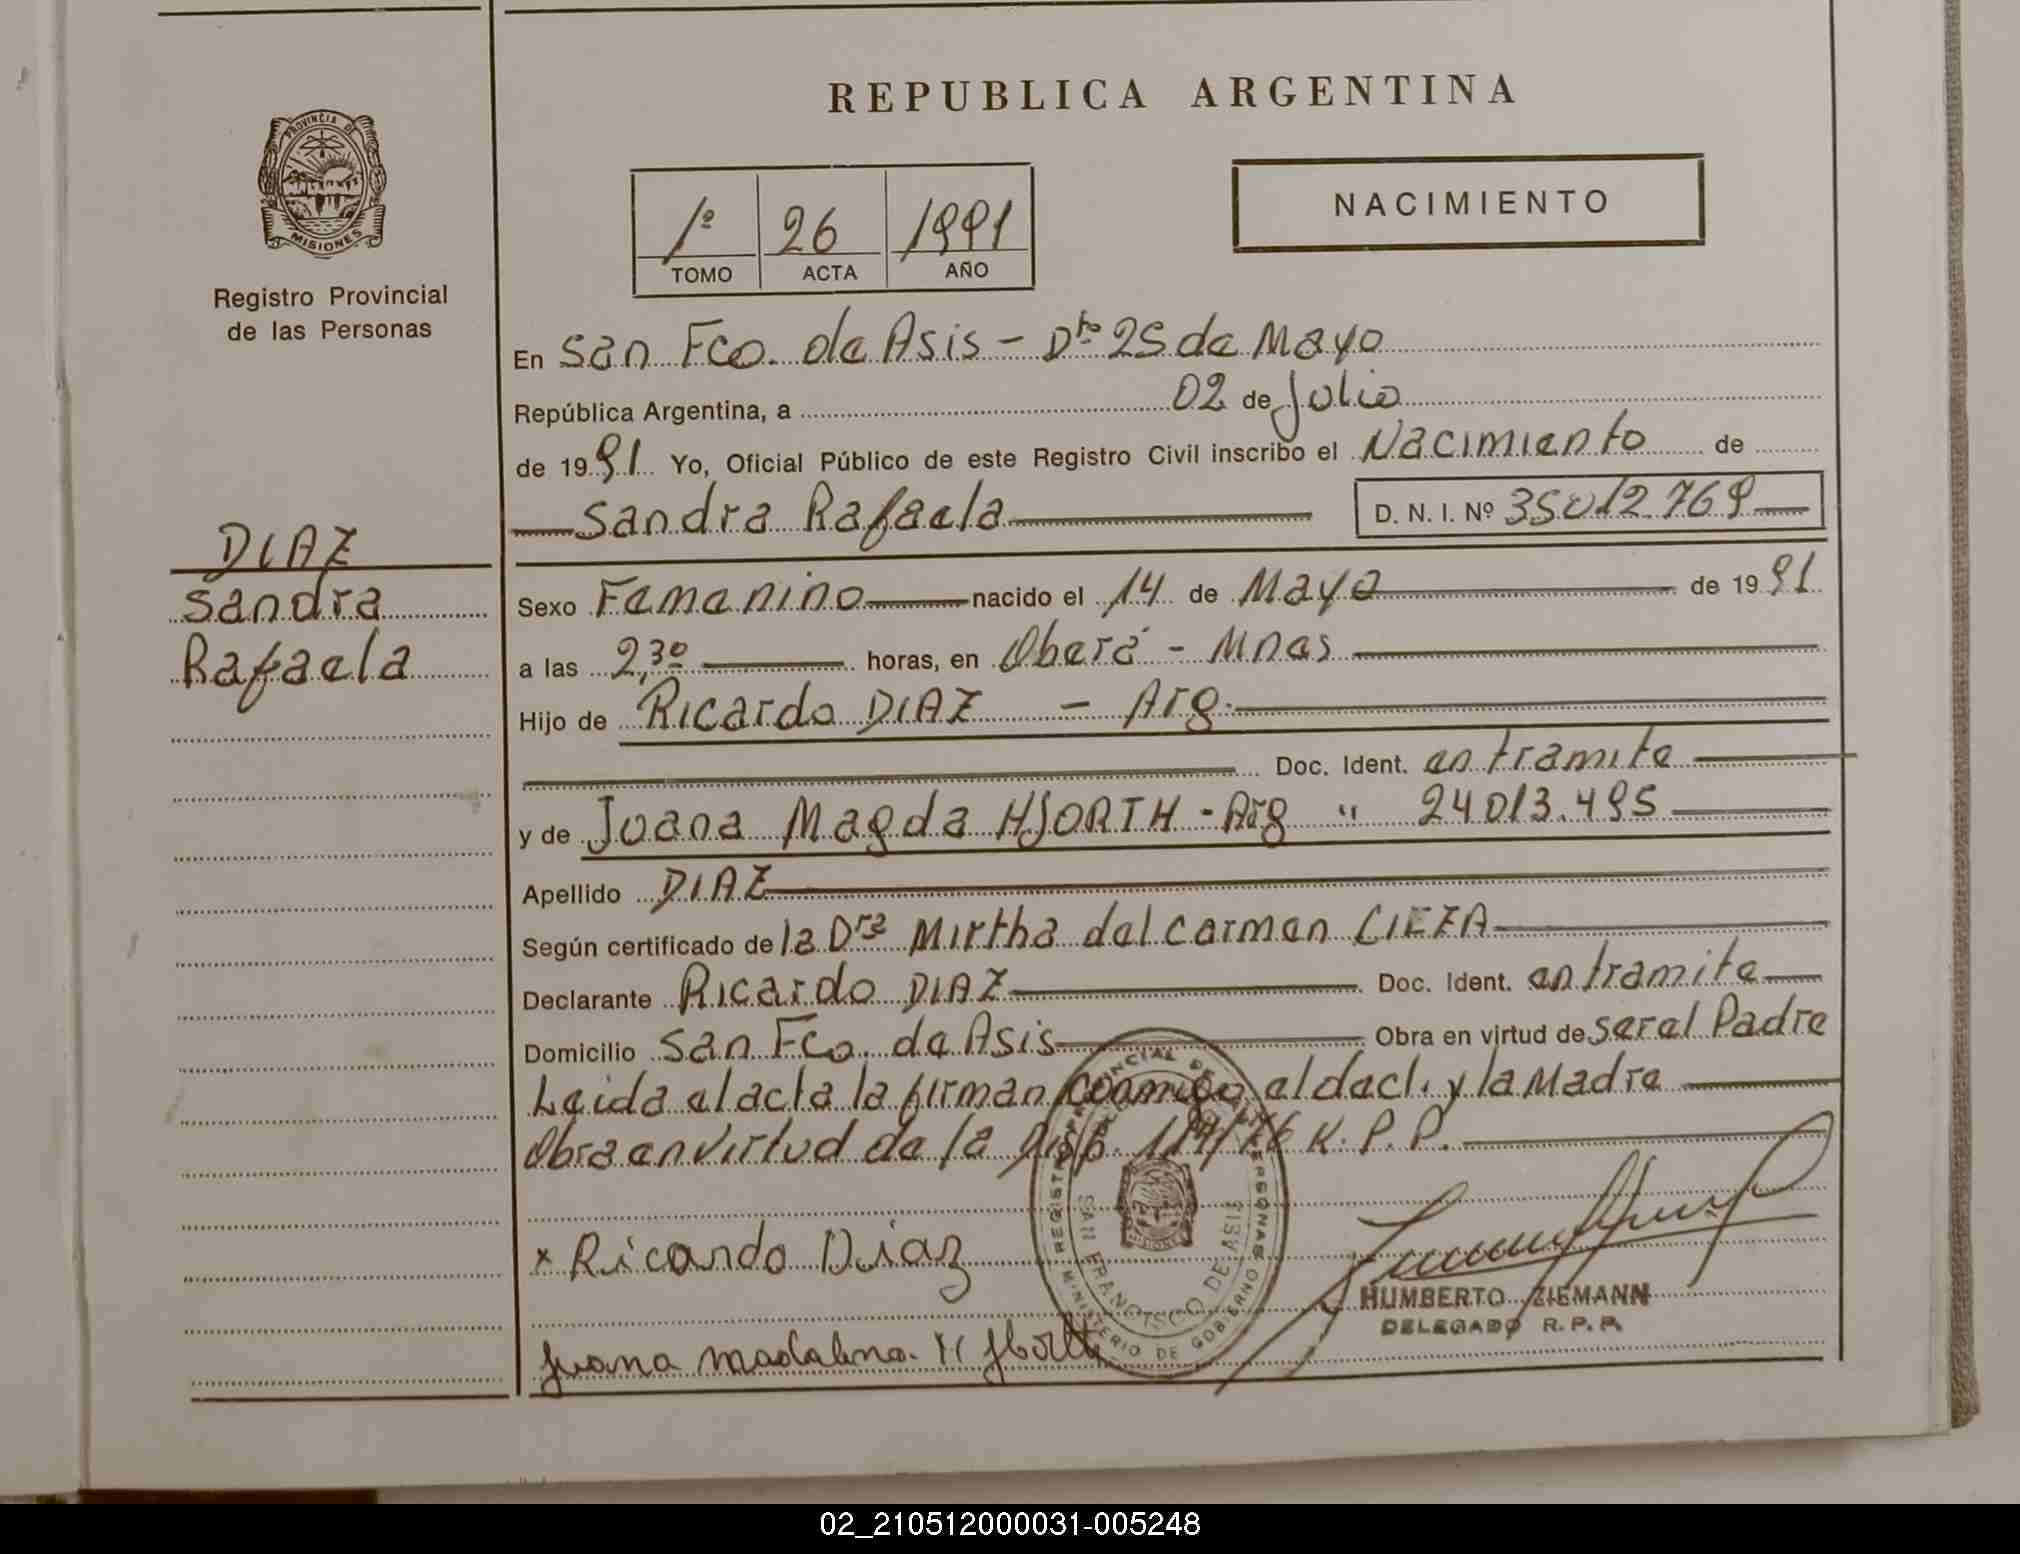 REPUBLICA ARGENTINA
PROVINCIA DE
MISIONES
Registro Provincial
de las Personas
1º 26 1991
TOMO ACTA AÑO
NACIMIENTO
En San Fco. de Asis - Dto 25 de Mayo
República Argentina, a 02 de Julio
de 1991 Yo, Oficial Público de este Registro Civil inscribo el Nacimiento de
Sandra Rafaela D. N. I. Nº 35012769
DIAZ
Sandra
Rafaela
Sexo Femenino nacido el 14 de Mayo de 1991
a las 2,30 horas, en Oberá - Mnes
Hijo de Ricardo DIAZ - Arg.
Doc. Ident. en tramite
y de Juana Magda HJORTH - Arg " 24013.495
Apellido DIAZ
Según certificado de la Dra Mirtha del Carmen CIEZA
Declarante Ricardo DIAZ Doc. Ident. en tramite
Domicilio San Fco. de Asis Obra en virtud de ser el Padre
Leida el acta la firman conmigo el decl. y la Madre
Obra en virtud de la Disp. /76 R.P.P.
x Ricardo Diaz
Juana madalena. H
REGISTRO PROVINCIAL DE LAS PERSONAS
MINISTERIO DE GOBIERNO
SAN FRANCISCO DE ASIS
MISIONES
HUMBERTO ZIEMANN
DELEGADO R.P.P.
02_210512000031-005248